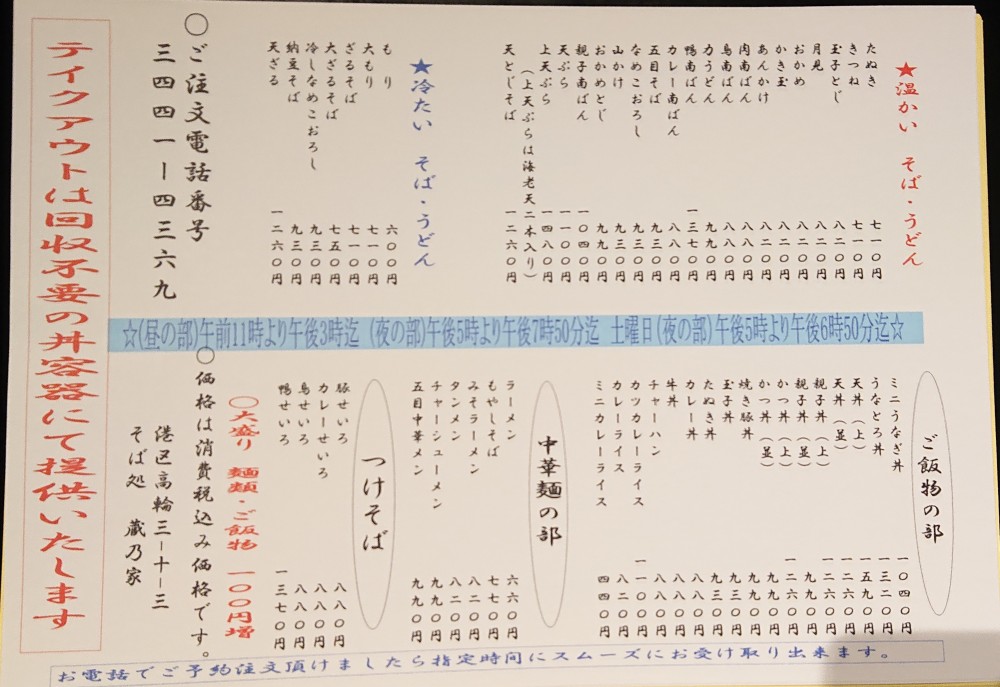 ★温かい そば・うどん
たぬき 七一〇円
きつね 七一〇円
玉子とじ 八二〇円
月見 八二〇円
おかめ 八二〇円
かき玉 八二〇円
あんかけ 八二〇円
肉南ばん 八八〇円
鳥南ばん 八八〇円
力うどん 九九〇円
鴨南ばん 一三七〇円
カレー南ばん 八八〇円
五目そば 九三〇円
なめこおろし 九三〇円
山かけ 九三〇円
おかめとじ 九九〇円
親子南ばん 一〇四〇円
天ぷら 一一〇〇円
上天ぷら 一四八〇円
(上天ぷらは海老天二本入り)
天とじそば 一二六〇円
★冷たい そば・うどん
もり 六〇〇円
大もり 七一〇円
ざるそば 七一〇円
大ざるそば 七五〇円
冷しなめこおろし 九三〇円
納豆そば 九三〇円
天ざる 一二六〇円
〇ご注文電話番号
三四四一ー四三六九
☆(昼の部)午前11時より午後3時迄 (夜の部)午後5時より午後7時50分迄 土曜日(夜の部)午後5時より午後6時50分迄☆
ご飯物の部
ミニうなぎ丼 一〇四〇円
うなとろ丼 一三二〇円
天丼(上) 一五九〇円
天丼(並) 一二六〇円
親子丼(上) 一二六〇円
親子丼(並) 九九〇円
かつ丼(上) 一二六〇円
かつ丼(並) 九九〇円
焼き豚丼 九九〇円
玉子丼 九三〇円
たぬき丼 九三〇円
カレー丼 八八〇円
牛丼 八八〇円
チャーハン 八八〇円
カツカレーライス 一一〇〇円
カレーライス 八二〇円
ミニカレーライス 四四〇円
中華麺の部
ラーメン 六六〇円
もやしそば 七七〇円
みそラーメン 八二〇円
タンメン 八二〇円
チャーシューメン 九九〇円
五目中華メン 九九〇円
つけそば
豚せいろ 八八〇円
カレーせいろ 八八〇円
鳥せいろ 八八〇円
鴨せいろ 一三七〇円
〇大盛り 麺類・ご飯物 一〇〇円増
〇価格は消費税込み価格です。
港区高輪三ー十ー三
そば処 蔵乃家
テイクアウトは回収不要の丼容器にて提供いたします
お電話でご予約注文頂けましたら指定時間にスムーズにお受け取り出来ます。